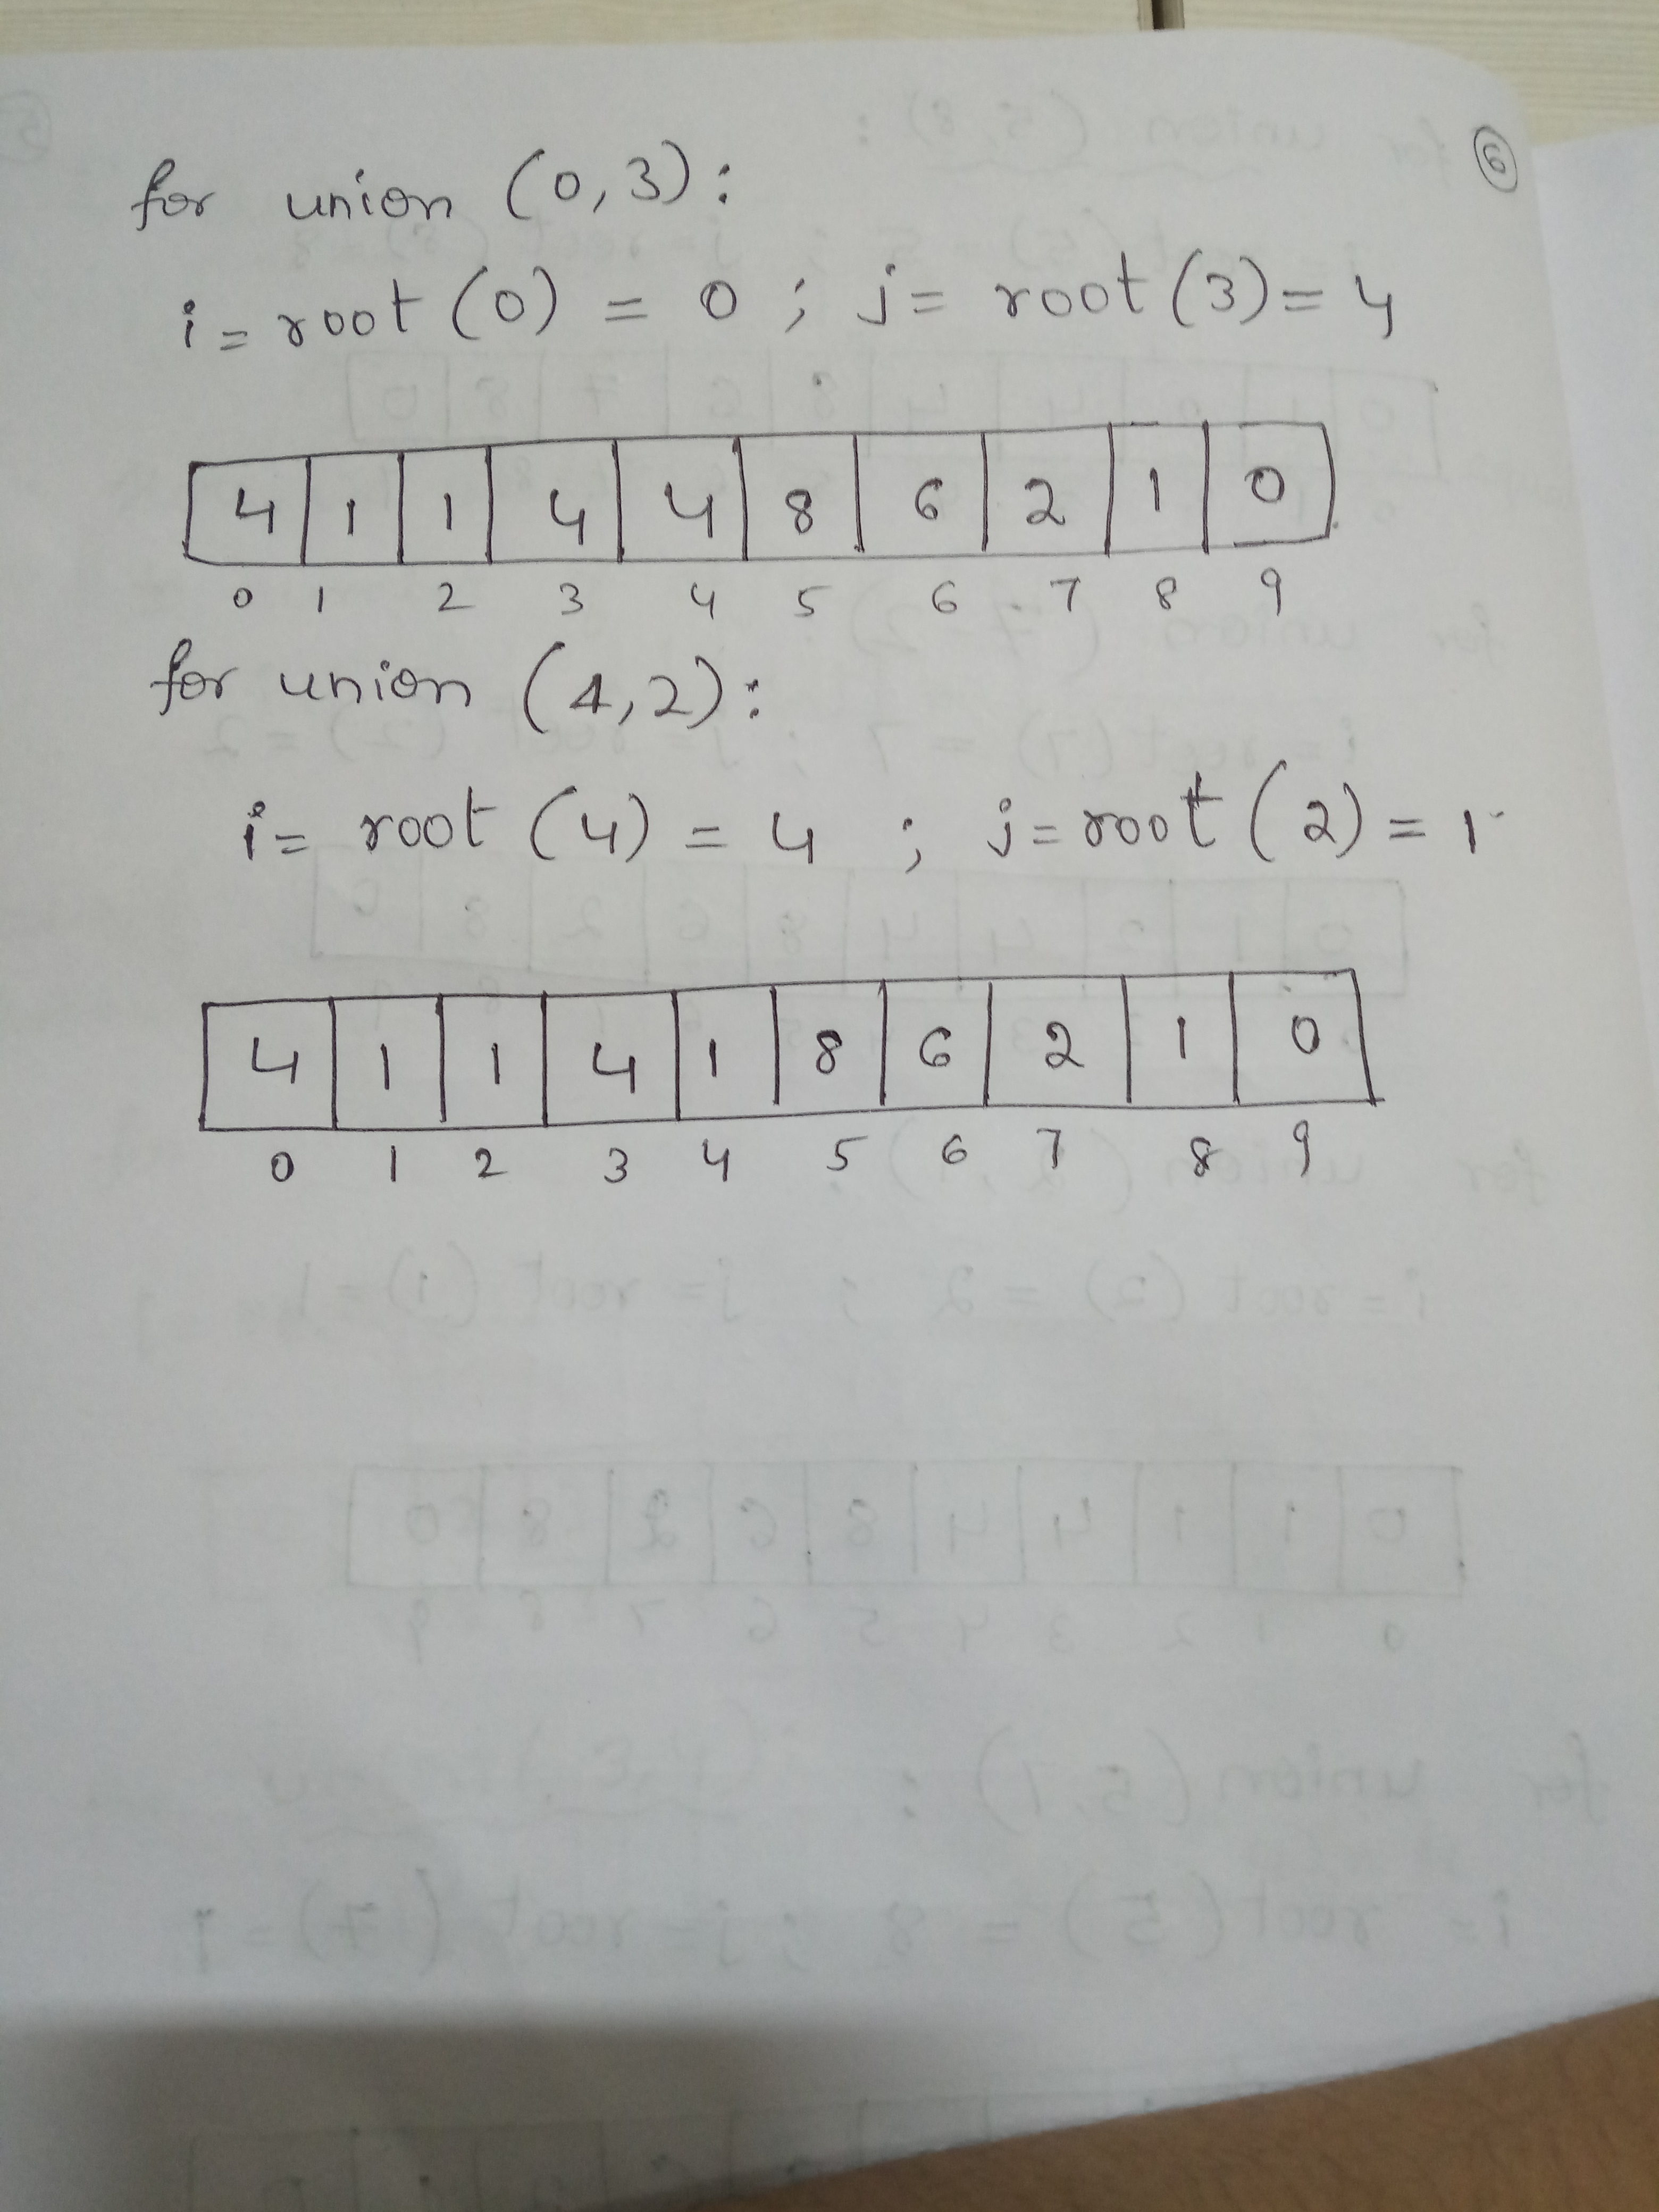 6
for union (0,3):
i = root (0) = 0 ; j = root (3) = 4
4 1 1 4 4 8 6 2 1 0
0 1 2 3 4 5 6 7 8 9
for union (4,2):
i = root (4) = 4 ; j = root (2) = 1
4 1 1 4 1 8 6 2 1 0
0 1 2 3 4 5 6 7 8 9